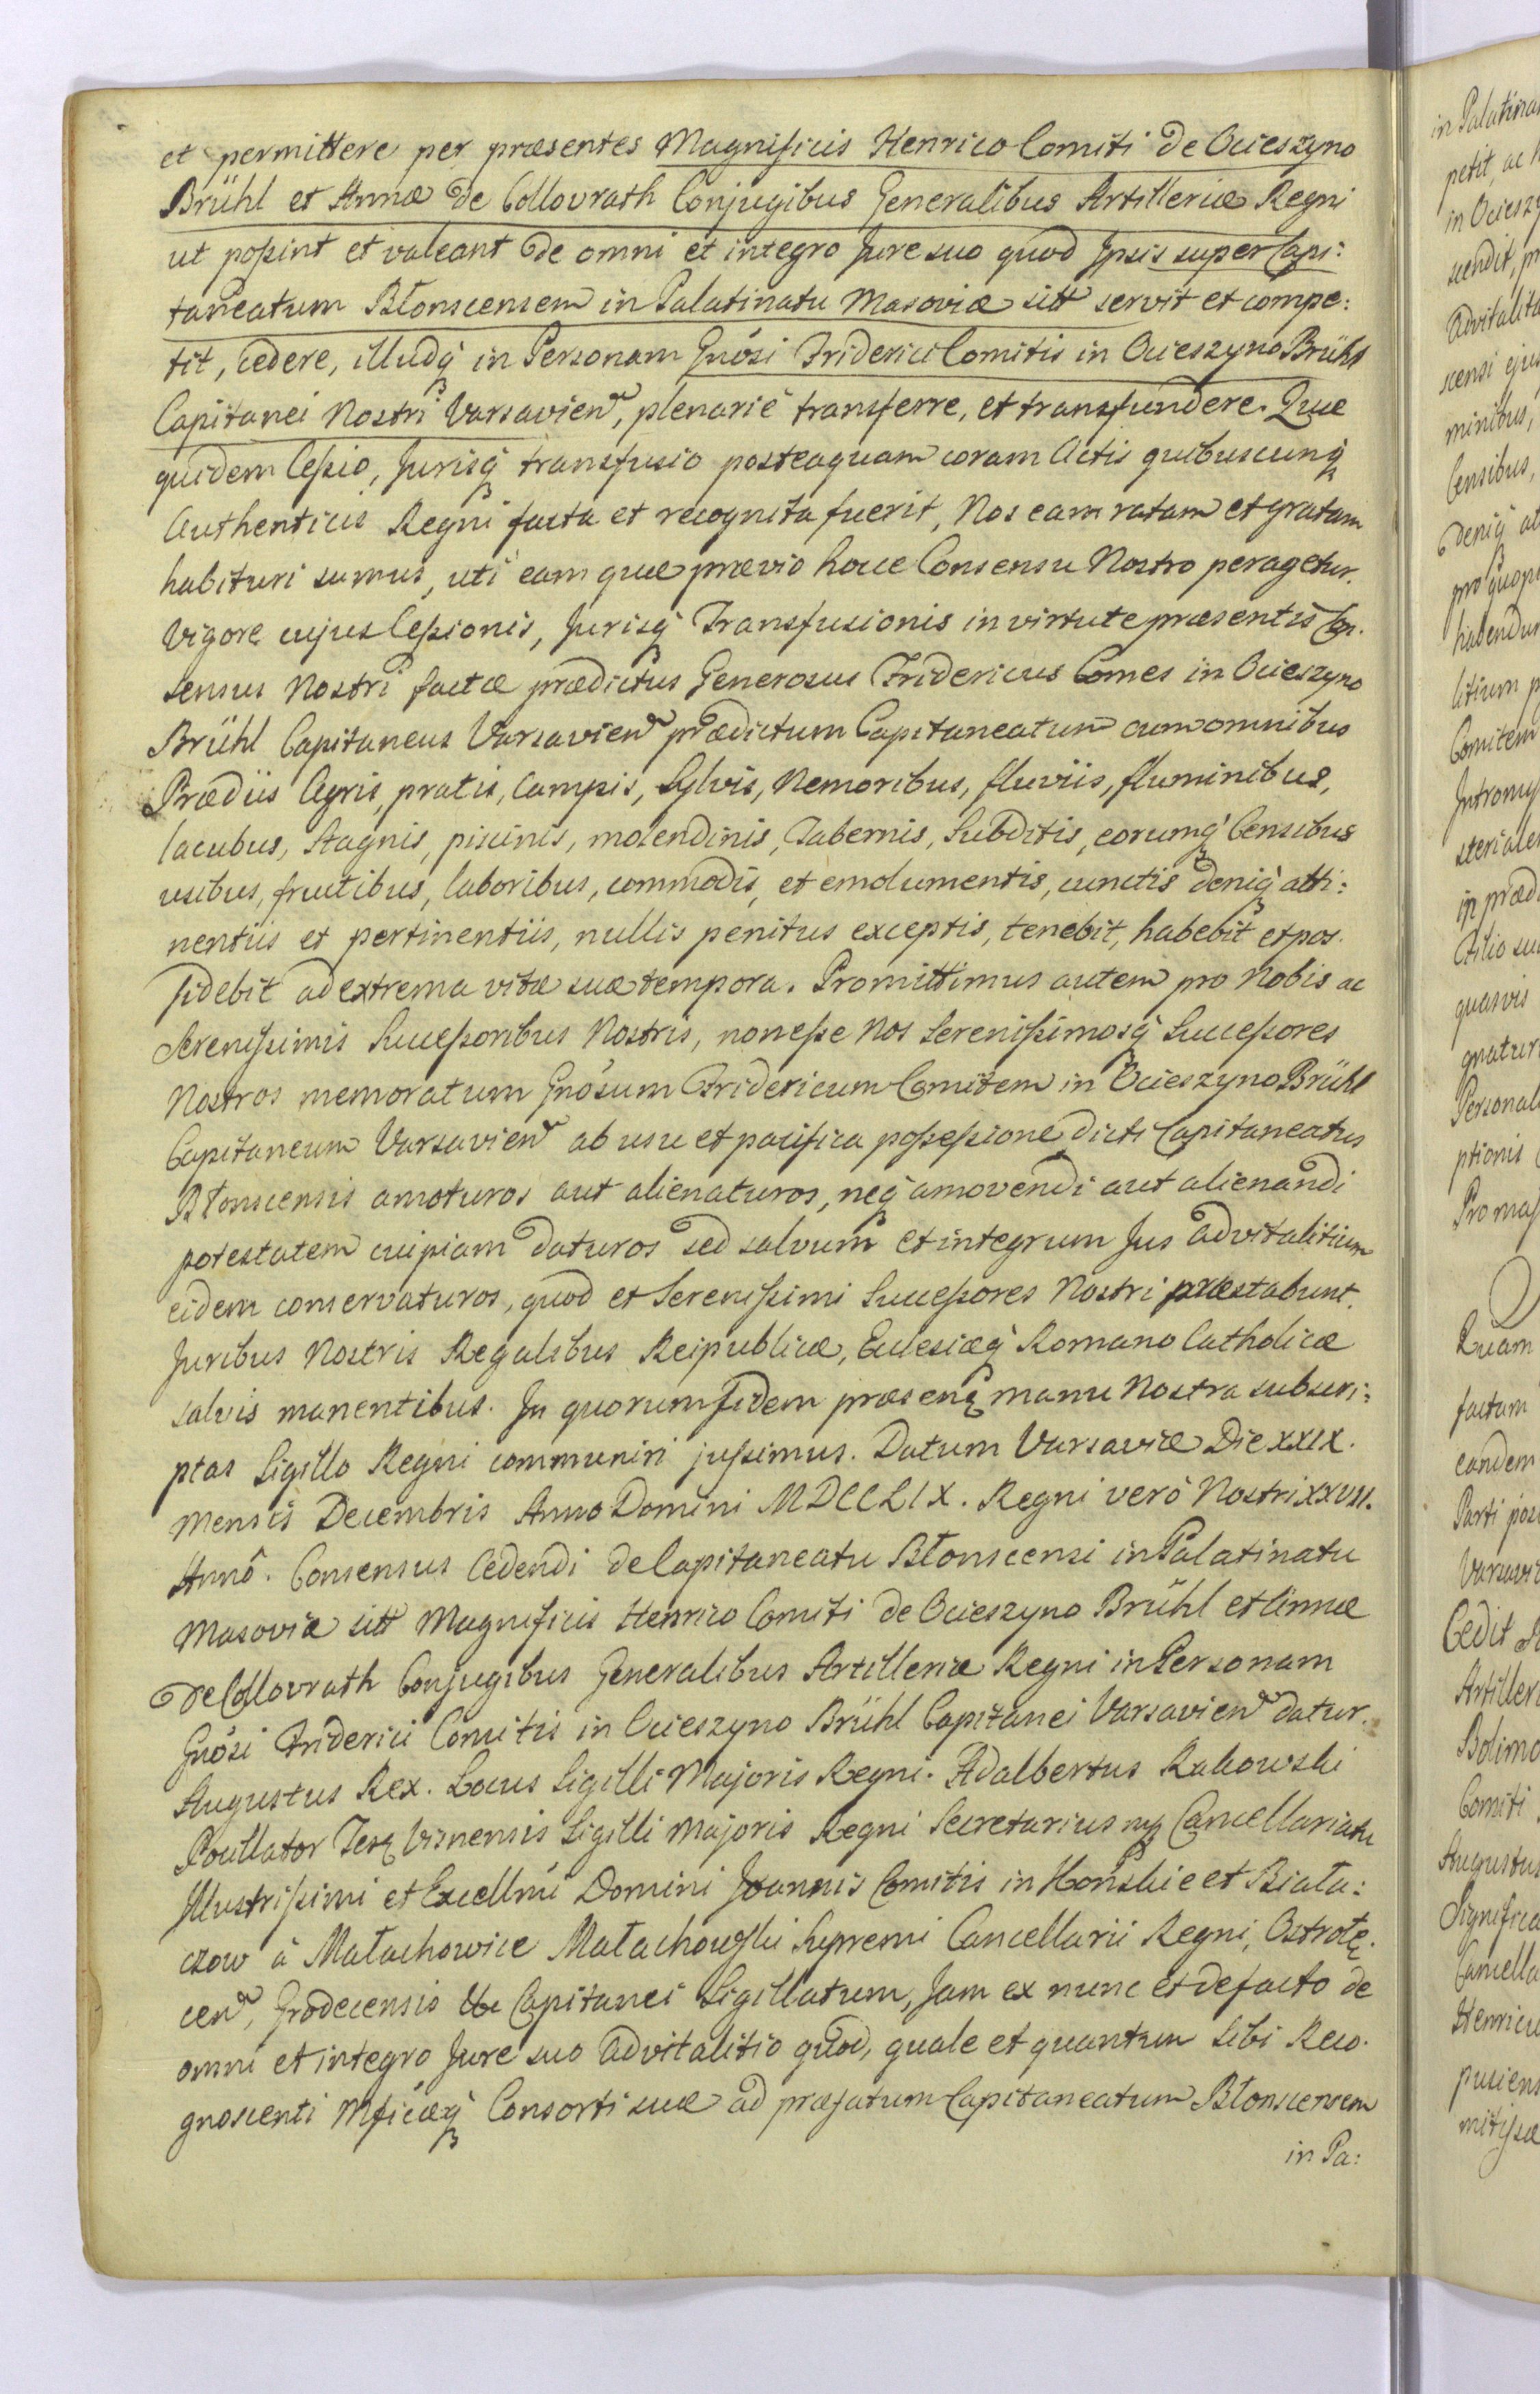 et permittere per præsentes Magnificis Henrico Comiti de Ocieszyno
Brühl et Annæ de Collovrath Conjugibus Generalibus Artilleriæ Regni
ut poßint et valeant de omni et integro Jure suo quod Ipsis super Capi:
taneatum Błonscensem in Palatinatu Masoviæ sitt servit et compe:
tit, cedere, illudq́ in Personam Gnósi Friderici Comitis in Ocieszyno Brühl
Capitanei Nostri Varsavien, plenarié transferre, et transfundere. Quæ
quidem Ceßio, Jurisq́ transfusio posteaquam coram Actis quibuscunq́
Authenticis Regni facta et recognita fuerit, Nos eam ratam et gratam
habituri sumus, uti eam quæ prævio hocce Consensu Nostro peragetur.
Vigore cujus Ceßionis, Jurisq́ Transfusionis in virtute præsentis Con.
sensus Nostri factæ prædictus Generosus Fridericus Comes in Ocieszyno
Brühl Capitaneus Varsavien prædictum Capitaneatum cum omnibus
Prædiis Agris, pratis, Campis, Sylvis, Nemoribus, fluviis, fluminibus,
lacubus, Stagnis, piscinis, molendinis, Tabernis, Subditis, eorumq́ Censibus
usibus, fructibus, laboribus, commodis, et emolumentis, cunctis deniq́ atti:
nentiis et pertinentiis, nullis penitus exceptis, tenebit, habebit et pos.
sidebit ad extrema vitæ suæ tempora. Promittimus autem pro Nobis ac
Serenißimis Succeßoribus Nostris, non eße Nos Serenißimosq́ Succeßores
Nostros memoratum Gnósum Fridericum Comitem in Ocieszyno Brühl
Capitaneum Varsavien ab usu et pacifica poßeßione dicti Capitaneatus
Błonscensis amoturos aut alienaturos, neq́ amovendi aut alienandi
potestatem cuipiam daturos sed salvum et integrum Jus advitalitium
eidem conservaturos, quod et Serenißimi Succeßores Nostri præstabunt.
Juribus Nostris Regalibus Reipublicæ, Ecclesiæq́ Romano Catholicæ
salvis manentibus. In quorum fidem præsenę manu Nostra subscri:
ptas Sigillo Regni communiri jußimus. Datum Varsaviæ Die XXIX.
Mensis Decembris Anno Domini MDCCLIX. Regni veró Nostri XXVII.
Annô. Consensus Cedendi de Capitaneatu Błonscensi in Palatinatu
Masoviæ sitt Magnificis Henrico Comiti de Ocieszyno Brühl et Annæ
de Collovrath Conjugibus Generalibus Artilleriæ Regni in Personam
Gnósi Friderici Comitis in Ocieszyno Brühl Capitanei Varsavien datur.
Augustus Rex. Locus Sigilli Majoris Regni. Adalbertus Rakowski
Pocillator Terę Visnensis Sigilli Majoris Regni Secretarius mp Cancellariatu
Illustrißimi et Excellmi Domini Joannis Comitis in Końskie et Biała:
czow à Małachowice Małachowski Supremi Cancellarii Regni, Ostrołę.
cen, Grodecensis Capitanei Sigillatum, Jam ex nunc et de facto de
omni et integro Jure suo advitalitio quod, quale et quantum Sibi Reco.
gnoscenti Mficæq́ Consorti suæ ad præfatum Capitaneatum Błonscensem
in Pa:
in Palatina
petit, ac
in Ociesz
advitalita
scensi eju
minibus,
Censibus,
deniq́ at
pro quop
habendu
litium p
Comitem
Intromi
sterialem
in præd
Filio su
quasvis
gnatur
Personal
ptionis
Pro maj
Quam
factum
eandem
Parti
Varsavi
Cedit
Artiller
Bolimo
Comiti
Augustus
Significa
Cancella
Henricu